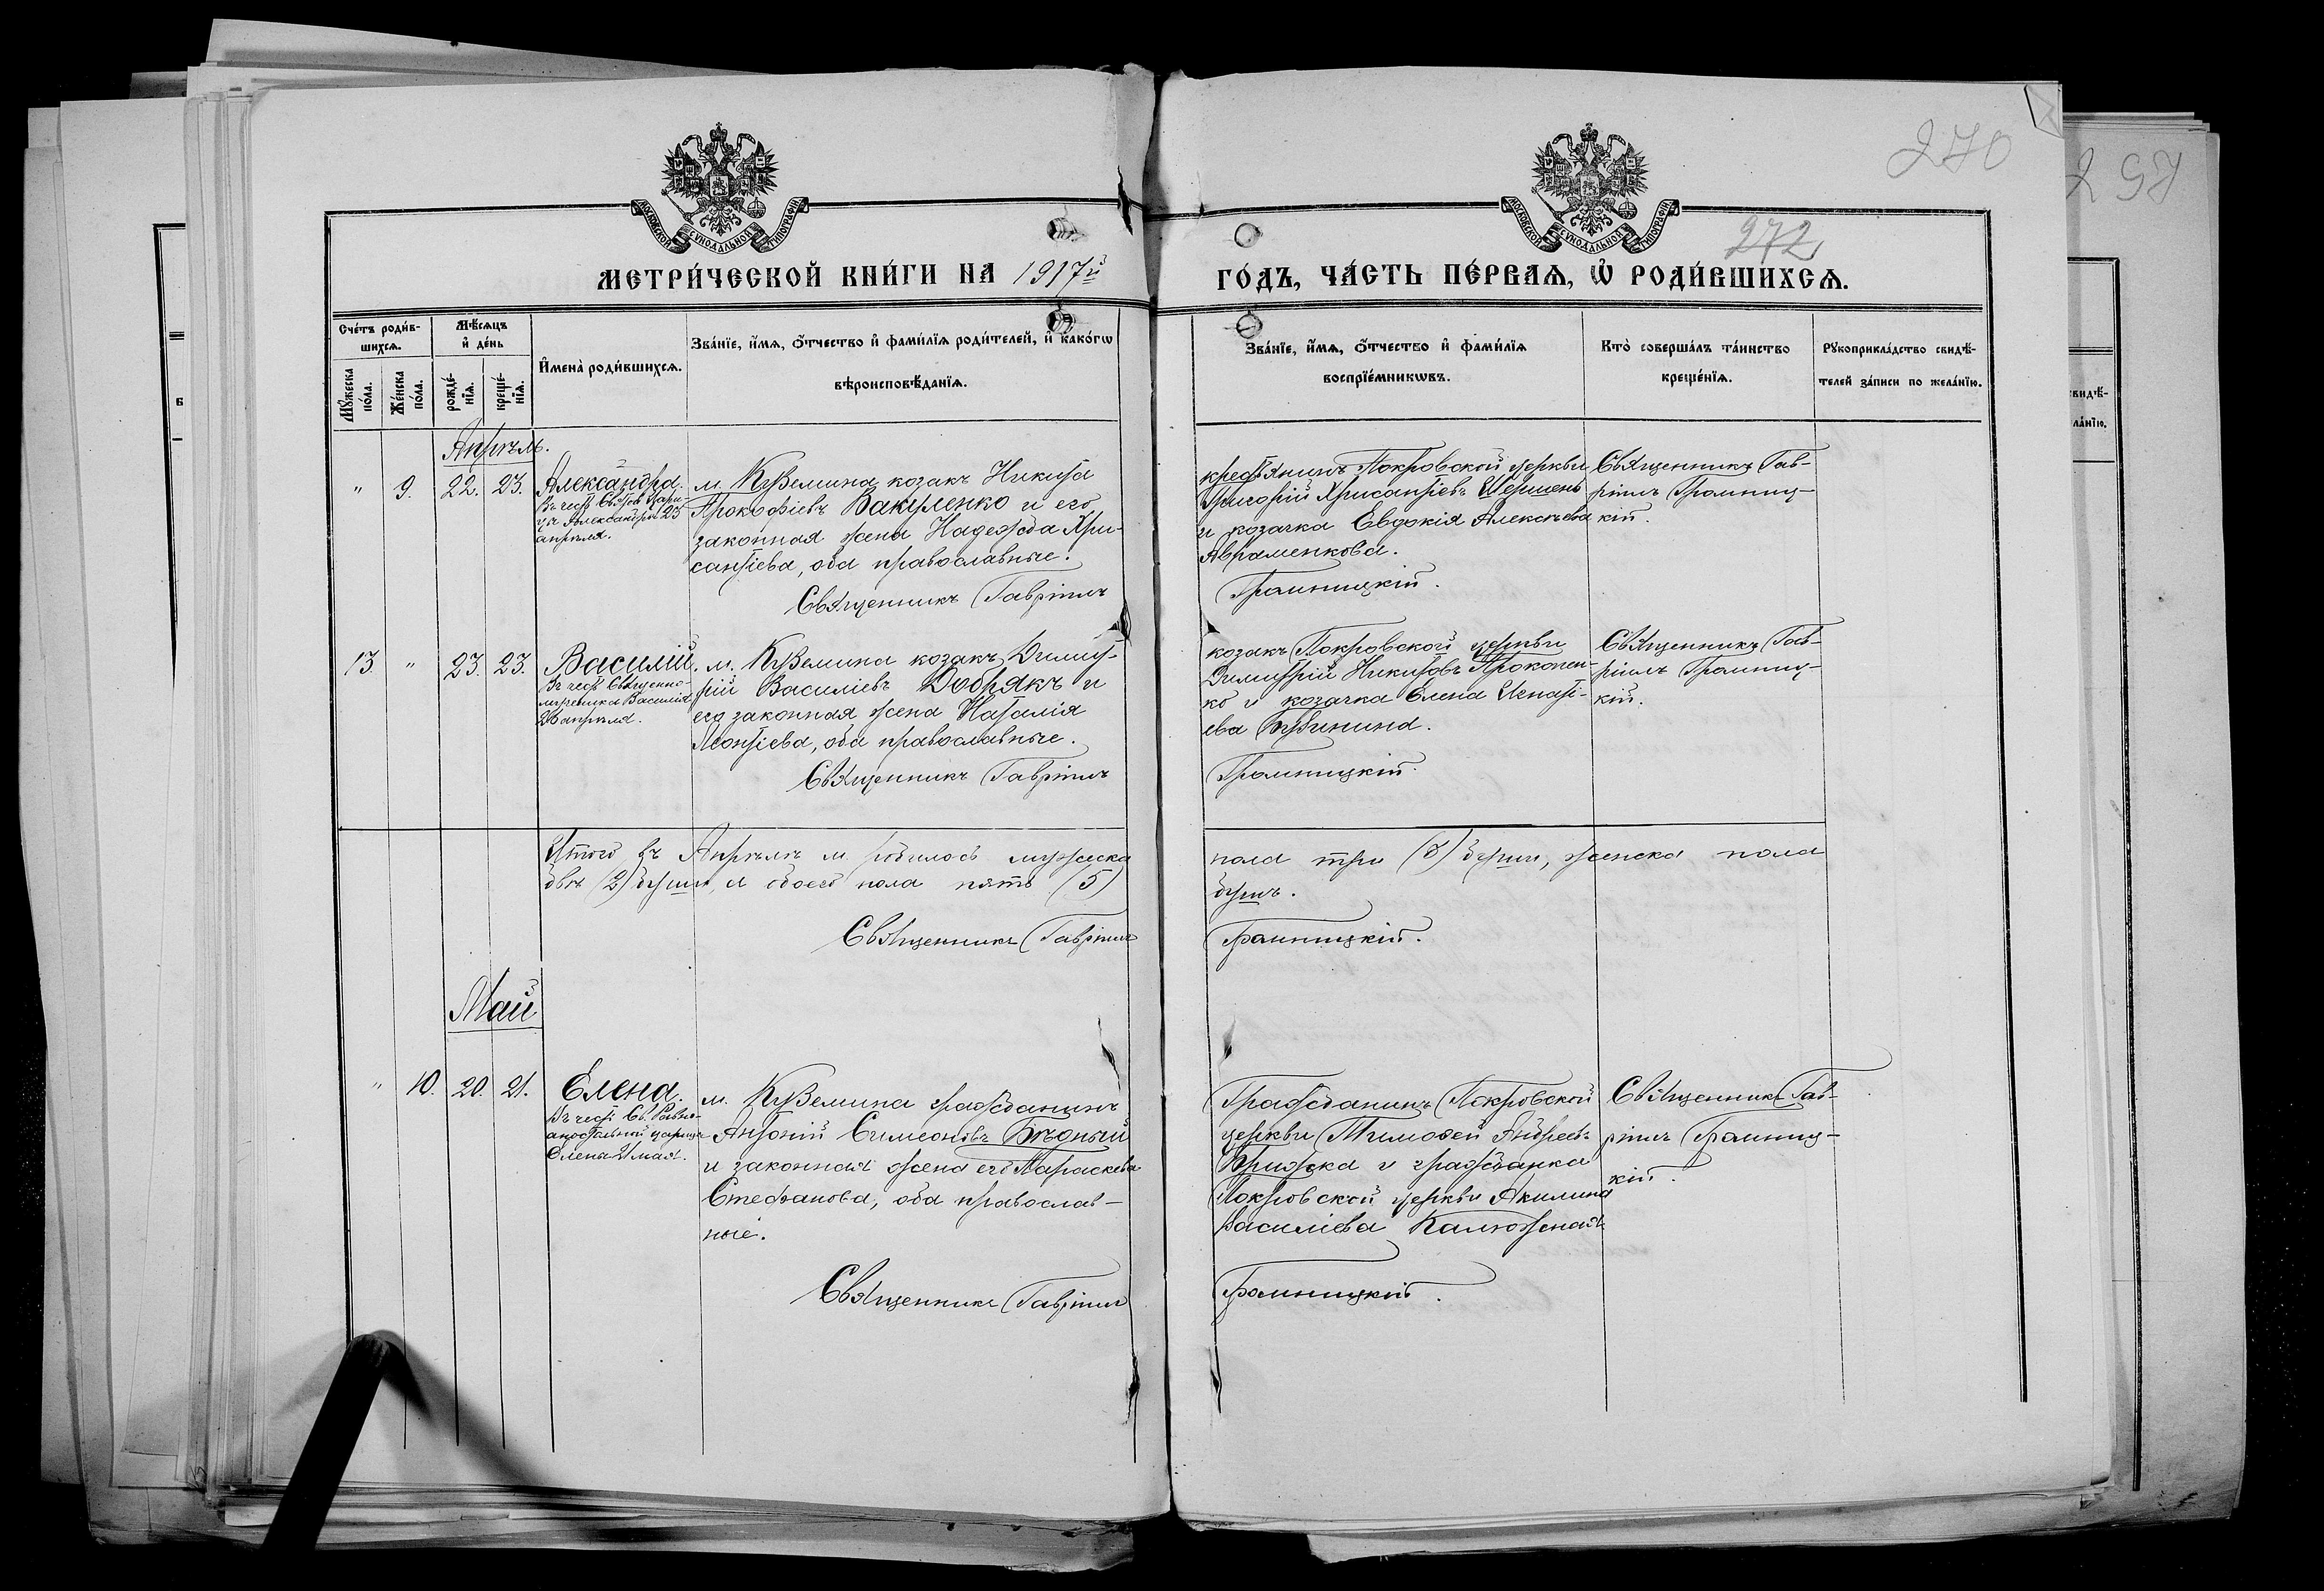 270
272
МОСКОВСКОЙ СѴНОДАЛЬНОЙ ТИПОГРАФІИ
МОСКОВСКОЙ СѴНОДАЛЬНОЙ ТИПОГРАФІИ
МЕТРИ́ЧЕСКОЙ КНИ́ГИ НА 1917й
ГО́ДЪ, ЧА́СТЬ ПЕ́РВАѦ, Ѡ҆ РОДИ́ВШИХСѦ.
Сче́тъ роди́в-
шихсѧ.
Мѣ́сѧцъ
и҆ де́нь
Мꙋ́жеска
по́ла.
Же́нска
по́ла.
рожде́-
нїѧ.
креще́-
нїѧ.
И҆мена̀ роди́вшихсѧ.
Зва́нїе, и҆́мѧ, ѻ҆́тчество и҆ фами́лїѧ роди́телей, и҆ како́гѡ
вѣроисповѣ́данїѧ.
Зва́нїе, и҆́мѧ, ѻ҆́тчество и҆ фами́лїѧ
воспрїе́мникѡвъ.
Кто̀ соверша́лъ та́инство
креще́нїѧ.
Рꙋкоприкла́дство свидѣ́-
телей за́писи по жела́нїю.
Апрѣль.
" 9. 22. 23. Александра.
Въ честь Св. Мтв. Цари-
цы Александры 23
апрѣля.
м. Куземина козакъ Никита
Прокофіевъ Вакуленко и его
законная жена Надежда Хри-
санѳіева, оба православные.
Священникъ Гавріилъ
крестьянинъ Покровской церкви
Григорій Хрисанѳіевъ Шершень
и козачка Евдокія Алексѣева
Авраменкова.
Грамницкій.
Священникъ Гав-
ріилъ Грамниц-
кій.
13. " 23. 23. Василій.
Въ честь Священно-
мученика Василія
26 апрѣля.
м. Куземина козакъ Димит-
рій Василіевъ Добрякъ и
его законная жена Наталія
Леонтіева, оба православные.
Священникъ Гавріилъ
козакъ Покровской церкви
Димитрій Никитовъ Прокопен-
ко и козачка Елена Игнаті-
ева
Грамницкій.
Священникъ Гав-
ріилъ Грамниц-
кій.
Итого въ Апрѣлѣ м. родилось мужеска
пола три (3) души, женска пола
двѣ (2) души, а обоего пола пять (5)
душъ.
Священникъ Гавріилъ
Грамницкій.
Май
" 10. 20. 21. Елена.
Въ честь Св. Равно-
апостольной царицы
Елены 21 мая.
м. Куземина гражданинъ
Антоній Симеоновъ Бѣдный
и законная жена его Параскева
Стефанова, оба православ-
ные.
Священникъ Гавріилъ
Гражданинъ Покровской
церкви Тимофей Андреевъ
и гражданка
Покровской церкви Акилина
Василіева Калюжная
Грамницкій.
Священникъ Гав-
ріилъ Грамниц-
кій.